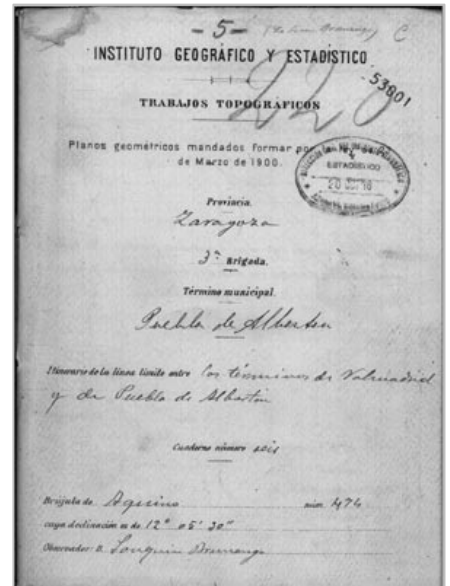 - 5 -
C
INSTITUTO GEOGRÁFICO Y ESTADÍSTICO
220
53801
TRABAJOS TOPOGRÁFICOS
Planos geométricos mandados formar por
de Marzo de 1900.
ESTADISTICO
20
Provincia.
Zaragoza
3ª Brigada.
Término municipal.
Puebla de Alborton
Itinerario de la línea límite entre los términos de Valmadrid
y de Puebla de Alborton
Cuaderno número seis
Brújula de Aquino núm. 474
cuya declinación es de 12° 05' 30"
Observador: D. Joaquin